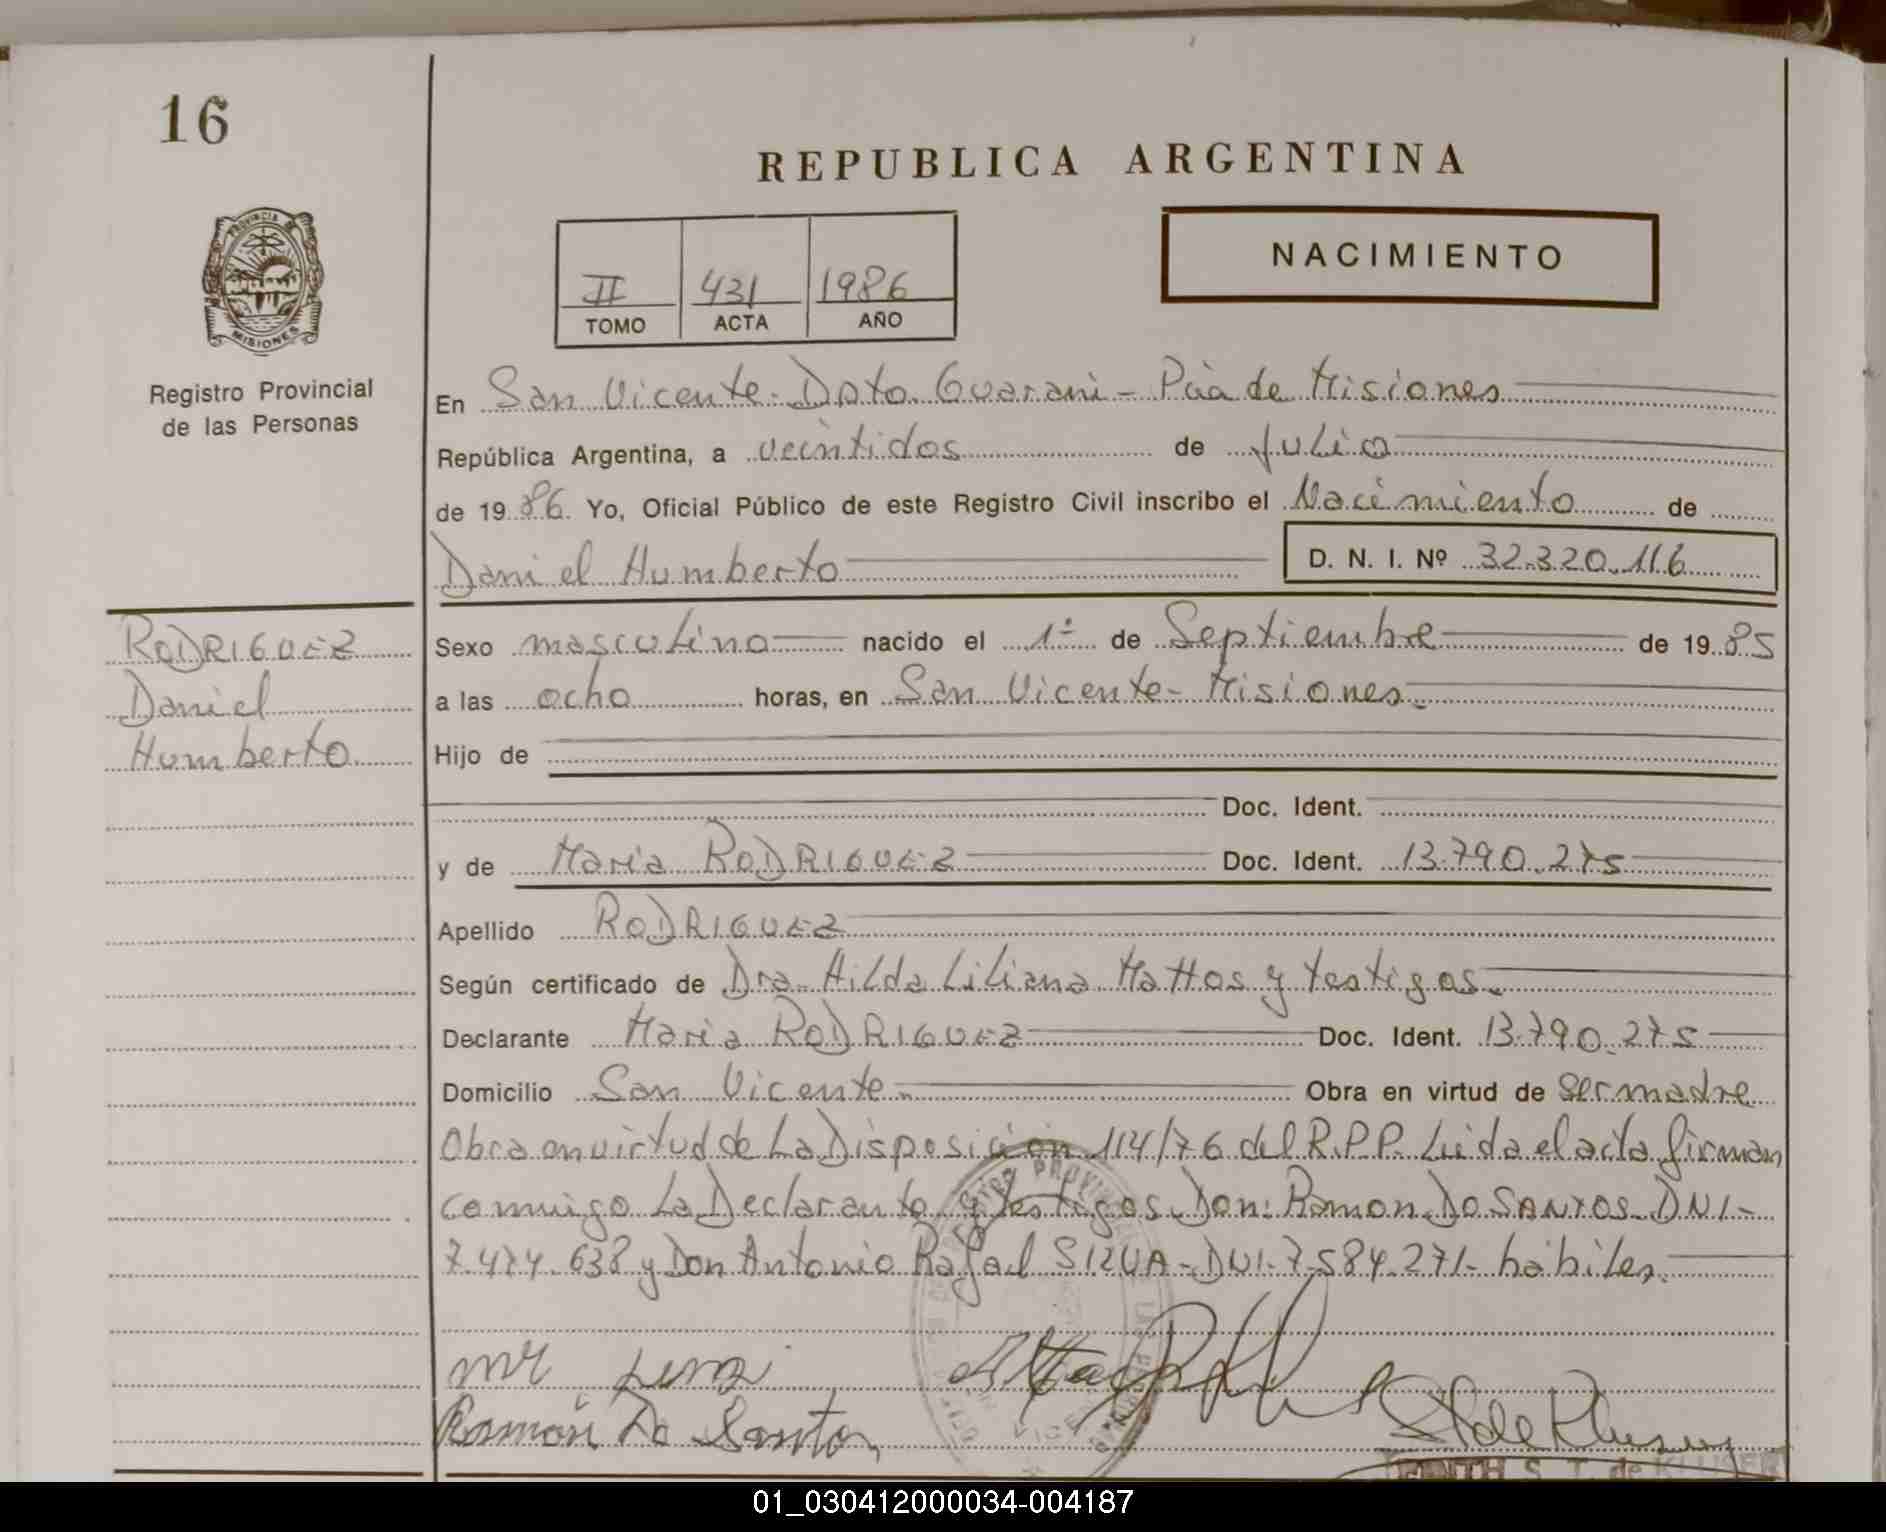 16
REPUBLICA ARGENTINA
PROVINCIA DE
MISIONES
Registro Provincial
de las Personas
II 431 1986
TOMO ACTA AÑO
NACIMIENTO
En San Vicente - Dpto. Guarani - Pcia de Misiones
República Argentina, a veintidos de Julio
de 1986 Yo, Oficial Público de este Registro Civil inscribo el Nacimiento de
Daniel Humberto D. N. I. Nº 32.320.116
RODRIGUEZ
Daniel
Humberto
Sexo masculino nacido el 1º de Septiembre de 1985
a las ocho horas, en San Vicente - Misiones.
Hijo de
Doc. Ident.
y de Maria RODRIGUEZ Doc. Ident. 13.790.275
Apellido RODRIGUEZ
Según certificado de Dra. Hilda Liliana Mattos y testigos.
Declarante Maria RODRIGUEZ Doc. Ident. 13.790.275
Domicilio San Vicente. Obra en virtud de ser madre
Obra en virtud de la Disposición 114/76 del R.P.P. Leida el acta firman
conmigo la Declarante y testigos Don: Ramon Do SANTOS - DNI -
7.474.638 y Don Antonio Rafael SILVA - DNI - 7.584.271 - hábiles.
Ramón Do Santos
EDITH S. T. de KLUSENER
01_030412000034-004187